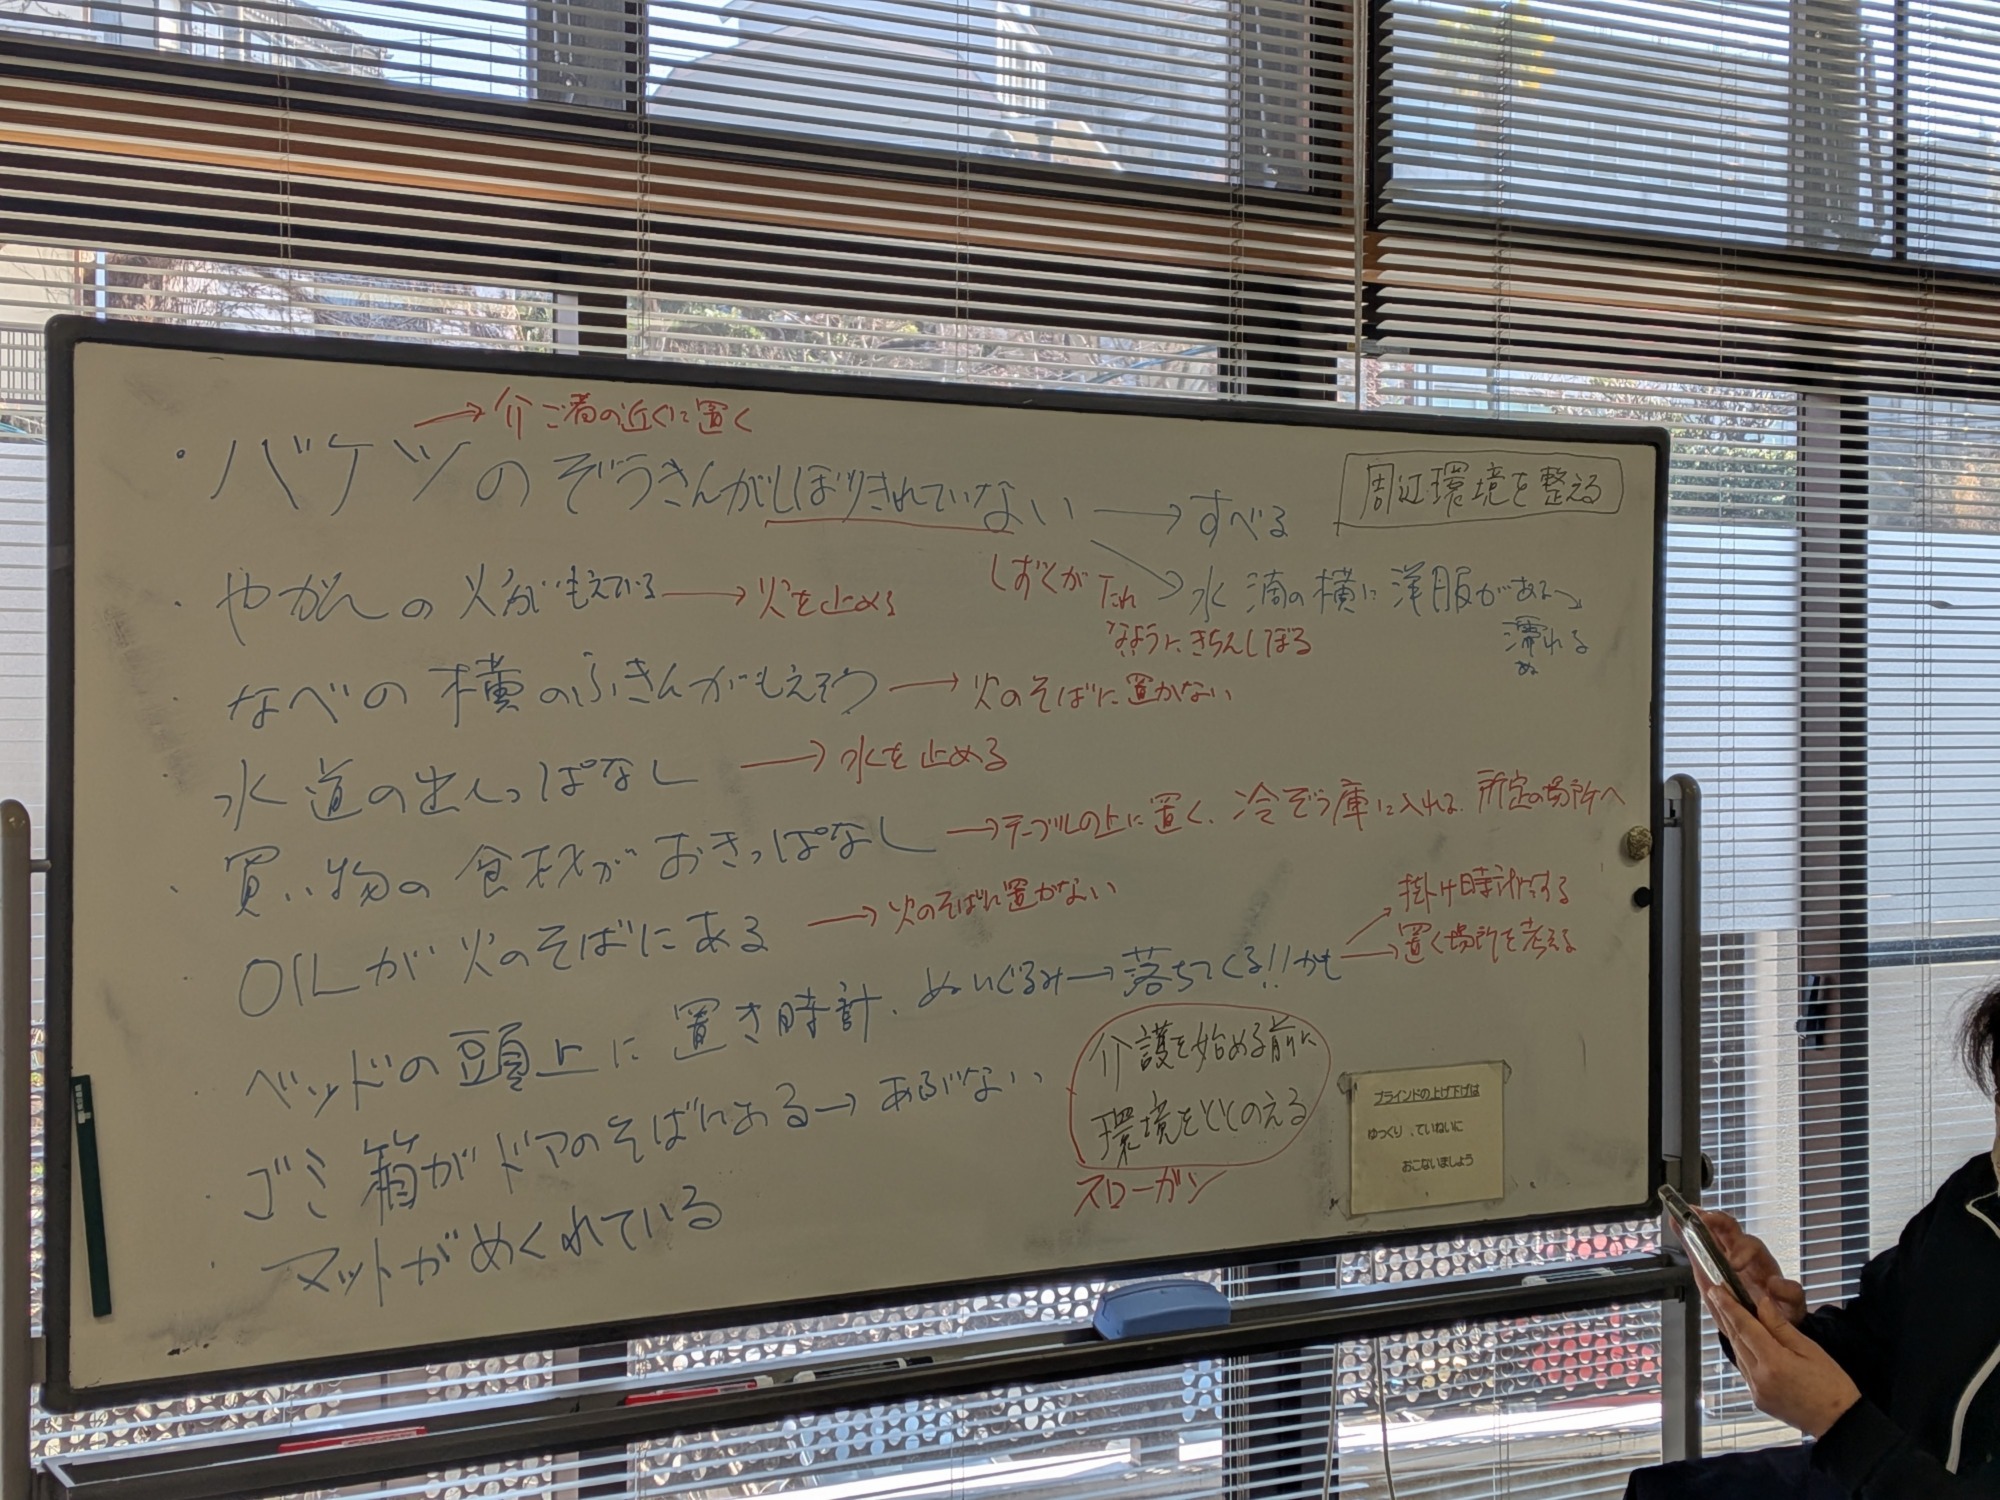 →介ご者の近くに置く
・バケツのぞうきんがしぼりきれていない→すべる
周辺環境を整える
→水滴の横に洋服がある→濡れる
ぬ
しずくがたれ
ないようにきちんしぼる
・やかんの火がもえている→火を止める
・なべの横のふきんがもえそう→火のそばに置かない
・水道の出しっぱなし→水を止める
・買い物の食材がおきっぱなし→テーブルの上に置く、冷ぞう庫に入れる、所定の場所へ
・OILが火のそばにある→火のそばに置かない
・ベッドの頭上に置き時計、ぬいぐるみ→落ちてくる!!かも
→掛け時計にする
→置く場所を考える
・ゴミ箱がドアのそばにある→あぶない
・マットがめくれている
介護を始める前に
環境をととのえる
スローガン
ブラインドの上げ下げは
ゆっくり、ていねいに
おこないましょう